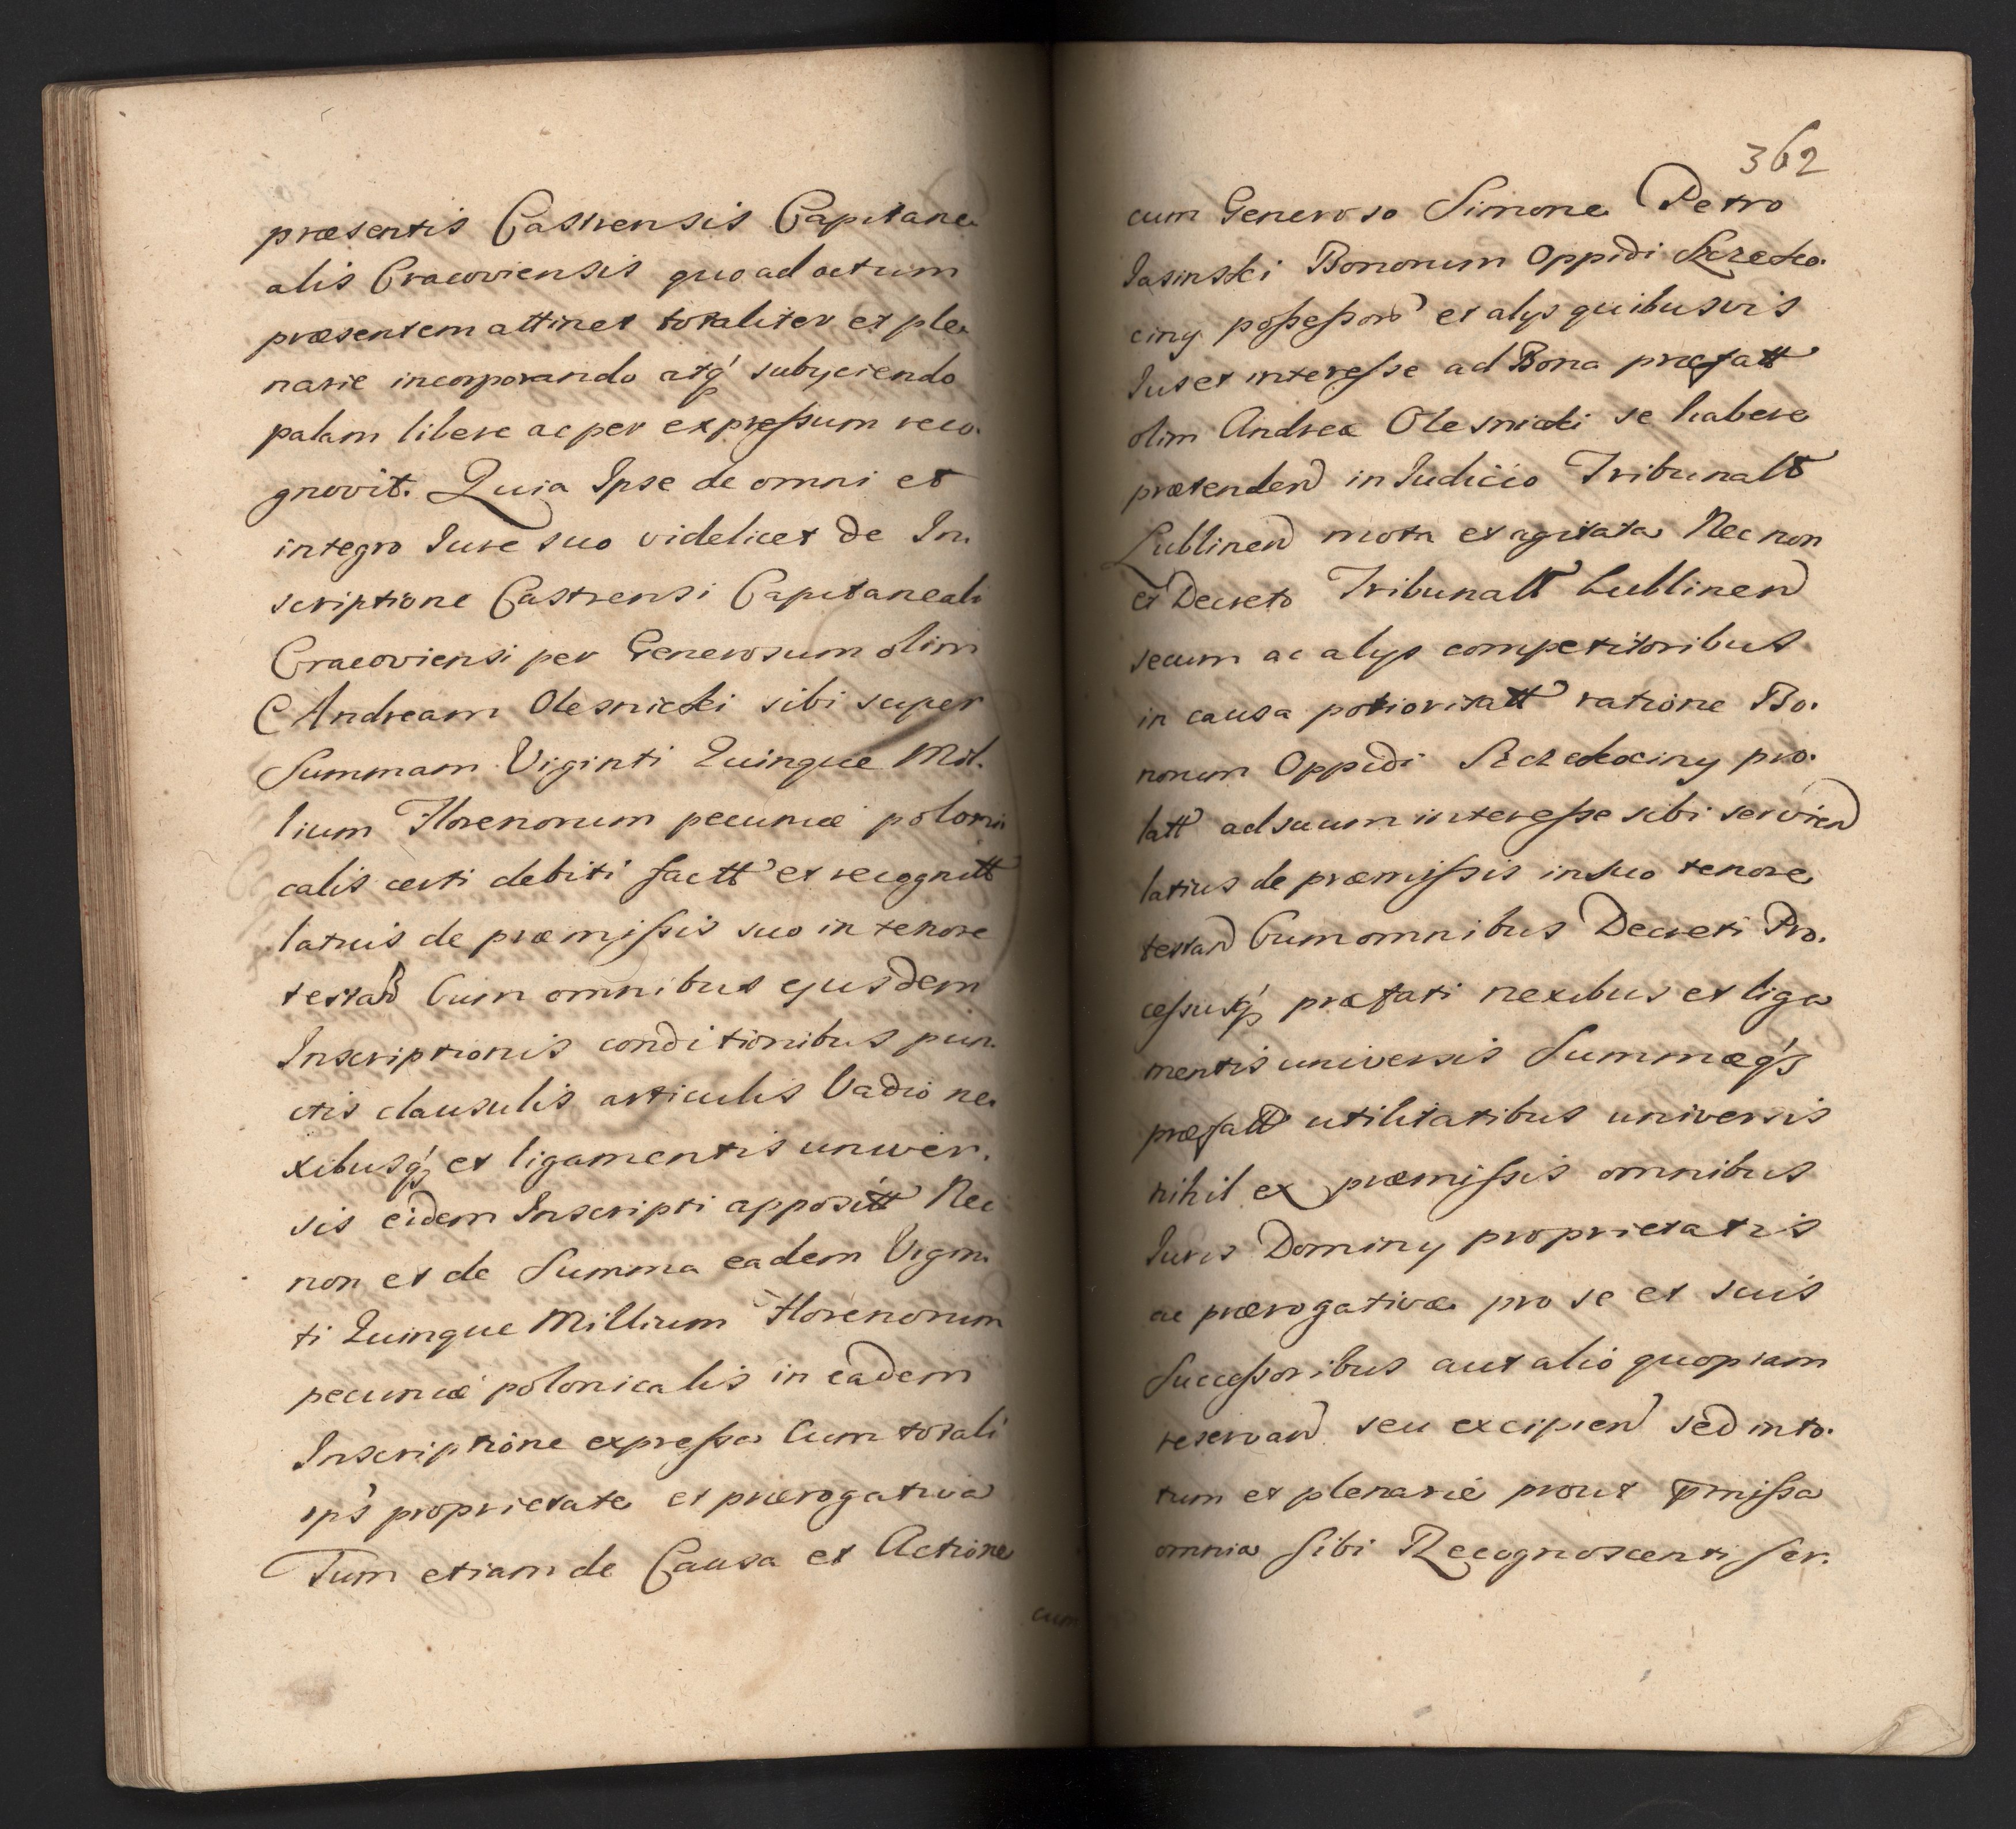 præsentis Castrensis Capitane-
alis Cracoviensis quo ad actum
præsentem attinet totaliter et ple-
narie incorporando atq́ subyciendo
palam libere ac per expreſsum reco-
gnovit. Quia Ipse de omni et
integro Iure suo videlicet de In-
scriptione Castrensi Capitaneali
Cracoviensi per Generosum olim
Andream Olesnicki sibi super
Summam Viginti Quinque Mil-
lium Florenorum pecuniæ poloni
calis certi debiti factt et recognitt
latius de præmiſsis suo in tenore
testand Cum omnibus ejusdem
Inscriptionis conditionibus pun-
ctis clausulis articulis Vadio ne-
xibusq́ et ligamentis univer-
sis eidem Inscripti appositt Nec
non et de Summa eadem Vigin-
ti Quinque Millium Florenorum
pecuniæ polonicalis in eadem
Inscriptione expreſsa Cum totali
ips proprietate et prærogativa
Tum etiam de Causa et Actione
cum
362
cum Generoso Simone Petro
Jasinski Bonorum Oppidi Szczeko-
ciny poſseſsore et alys quibusvis
Jus et intereſse ad Bona præfatt
olim Andreæ Olesnicki se habere
prætenden in Iudicio Tribunalt
Lublinen mota et agitata Nec non
et Decreto Tribunalt Lublinen
secum ac alys competitoribus
in causa potioritatt ratione Bo-
norum Oppidi Szczekociny pro-
latt ad suum intereſse sibi servien
latius de præmiſsis in suo tenore
testand Cum omnibus Decreti Pro-
ceſsusq́ præfati nexibus et liga
mentis universis Summæq́
præfatt utilitatibus universis
nihil ex præmiſsis omnibus
Juris Dominy proprietatis
ac prærogativæ pro se et suis
Succeſsoribus aut alio quopiam
reservand seu excipien sed in to-
tum et plenarie prout pmiſsa
omnia sibi Recognoscenti ser-